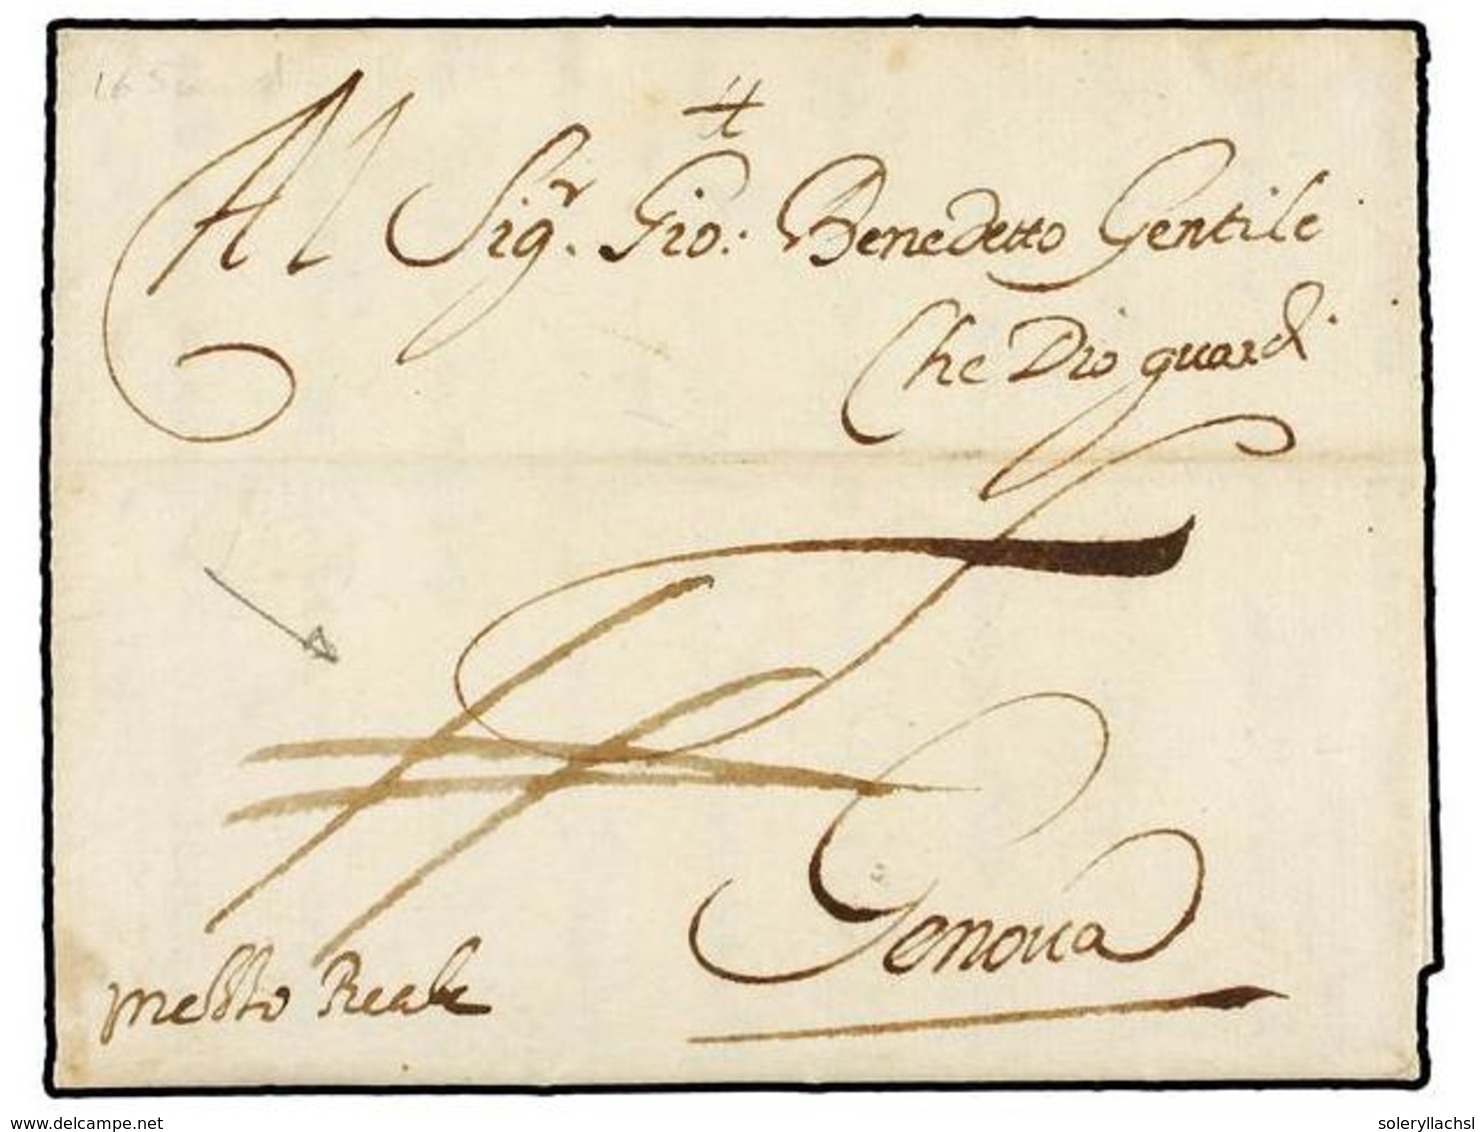 Al Sigr. Gio: Benedetto Gentile
Che Dio guardi
Genoua
Reale
www.delcampe.net
soleryllachsl